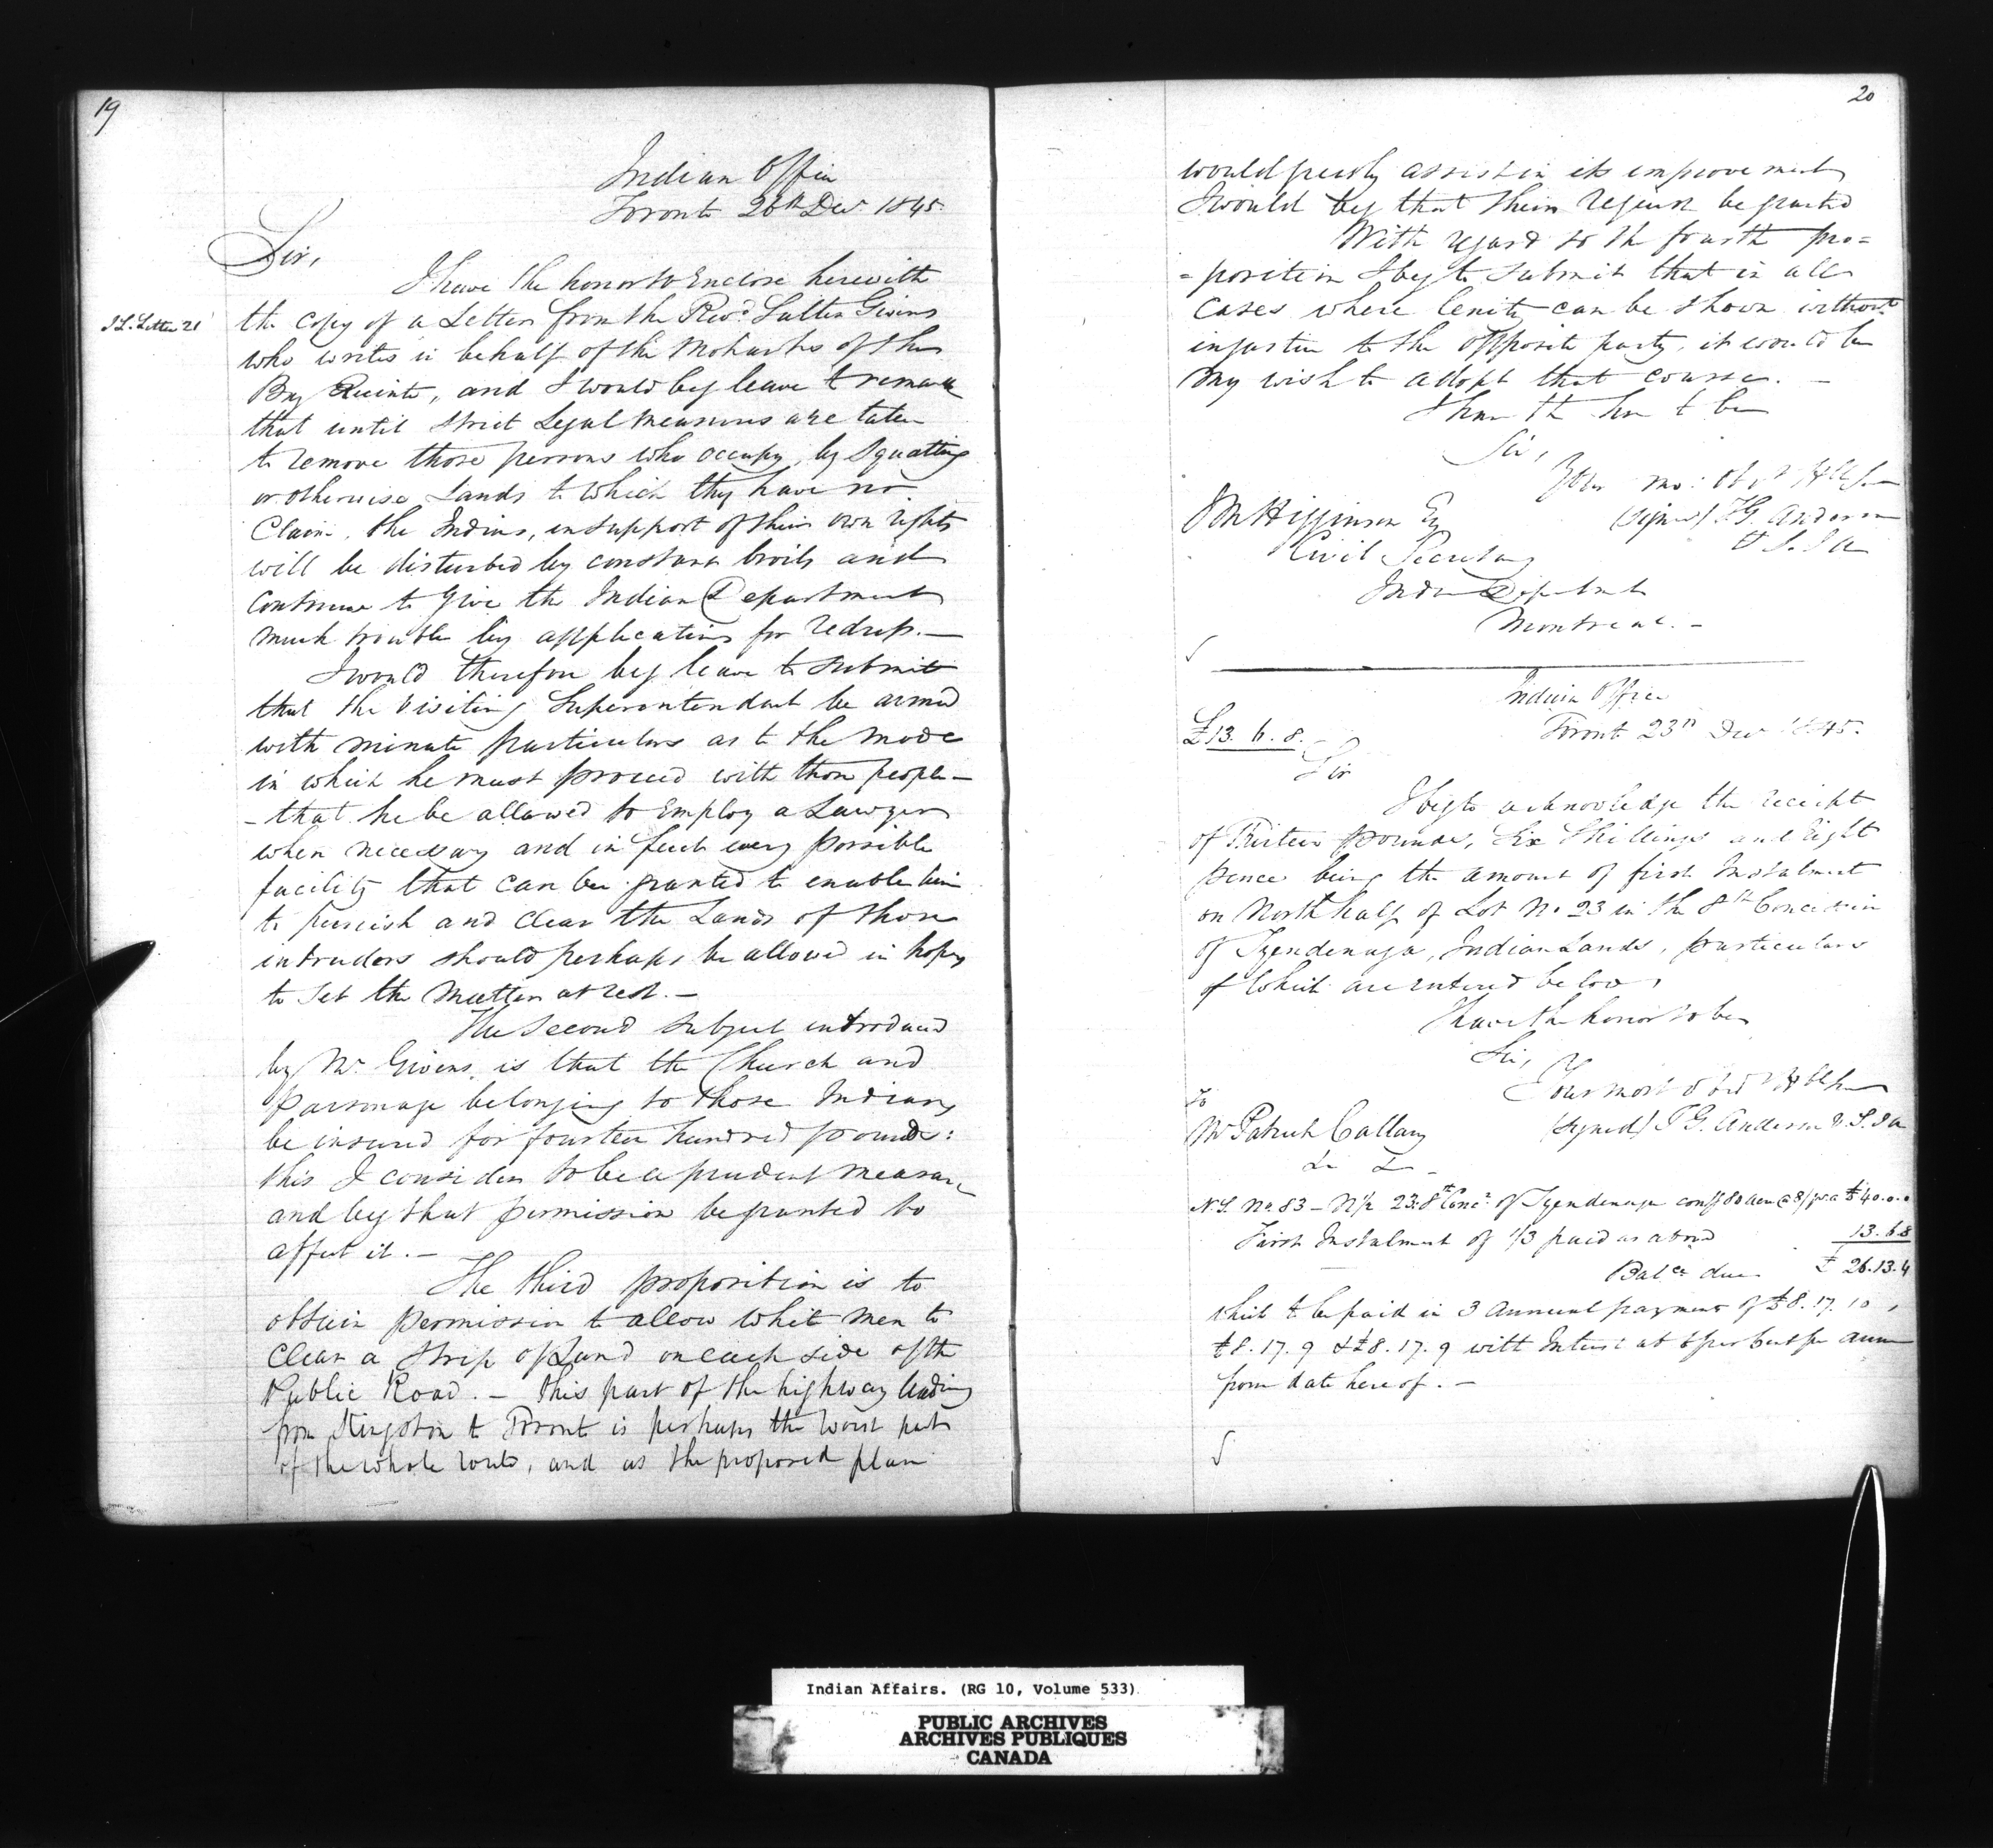 19
Indian Office
Toronto 26th Decr 1845.
Sir,
I have the honor to Enclose herewith
the copy of a Letter from the Revd. Salter Givins
who writes in behalf of the Mohawks of the
Bay Quinte, and I would beg leave to remark
that until strict Legal measures are taken
to remove those persons who occupy, by Squatting
or otherwise Lands to which they have no
Claim, the Indians, in support of their own rights
will be disturbed by constant broils and
continue to give the Indian Department
much trouble by applications for redress.—
I would therefore beg leave to submit
that the Visiting Superintendent be armed
with minute particulars as to the mode
in which he must proceed with those people—
- that he be allowed to Employ a Lawyer
when necessary and in fact every possible
facility that can be granted to enable him
to punish and clear the Lands of those
intruders should perhaps be allowed in hopes
to set the matter at rest.—
The Second subject introduced
by Mr. Givins, is that the Church and
Parsonage belonging to those Indians
be insured for fourteen hundred pounds:
this I consider to be a prudent measure
and beg that permission be granted to
affect it.—
The third proposition is to
obtain permission to allow white men to
Clear a Strip of Land on each side of the
Public Road.— this part of the highway leading
from Kingston to Toronto is perhaps the worst part
of the whole route, and as the proposed plan
20
would greatly assist in its improvement
I would beg that their request be granted
With regard to the fourth pro=
=position I beg to submit that in all
cases where lenity can be shown without
injustice to the opposite party, it would be
my wish to adopt that course.—
I have the honor to be
Sir,
Your mo: Obt. Hble Sr
(signed) T.G. Anderson
V S. I A
J M Higginson Esq
Civil Secretary
Indian Department
Montreal.-
Indian Office
Toronto 23rd Decr 1845.
£13. 6. 8.
Sir
I beg to acknowledge the receipt
of Thirteen pounds, Six Shillings and Eight
pence being the amount of first Instalment
on North half of Lot No. 23 in the 8th Concession
of Tyendenaga, Indian Lands, particulars
of which are entered below.
I have the honor to be
Sir,
Your most Obdt Hble Sr
(signed) T G. Anderson V. S. I A
To
Mr Patrick Callary
N.S. No. 83 - N½ 23. 8th Conc. of Tyendenaga 80 acres @ 8/ £40.0.0
First Instalment of 1/3 paid as above 13.6.8
Balce due £ 26.13.4
which to be paid in 3 annual payments of £8.17.10,
£8.17.9 & £8.17.9 with Interest at 6 per Cent per annum
from date hereof.—
Indian Affairs. (RG 10, Volume 533)
PUBLIC ARCHIVES
ARCHIVES PUBLIQUES
CANADA